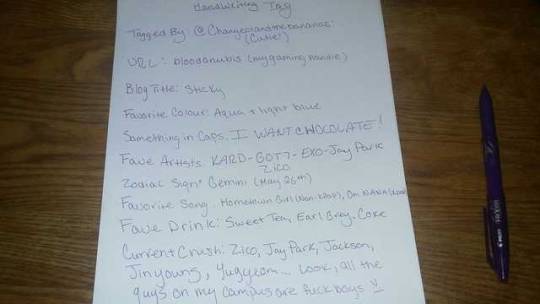 Handwriting Tag
Tagged By: @Changesandthebananas
(Cutie!)
URL: bloodanubis (my gaming handle)
Blog Title: Sticky
Favorite Colour: Aqua + light blue
Something in Caps: I WANT CHOCOLATE!
Fave Artists: KARD-GOT7-EXO-Jay Park
Zico
Zodiac Sign: Gemini (May 26th)
Favorite Song: Hometown Girl (Non-kpop), Oh NANA
Fave Drink: Sweet Tea, Earl Grey, Coke
Current Crush: Zico, Jay Park, Jackson,
Jinyoung, Yugyeom... Look, all the
guys on my campus are fuck boys